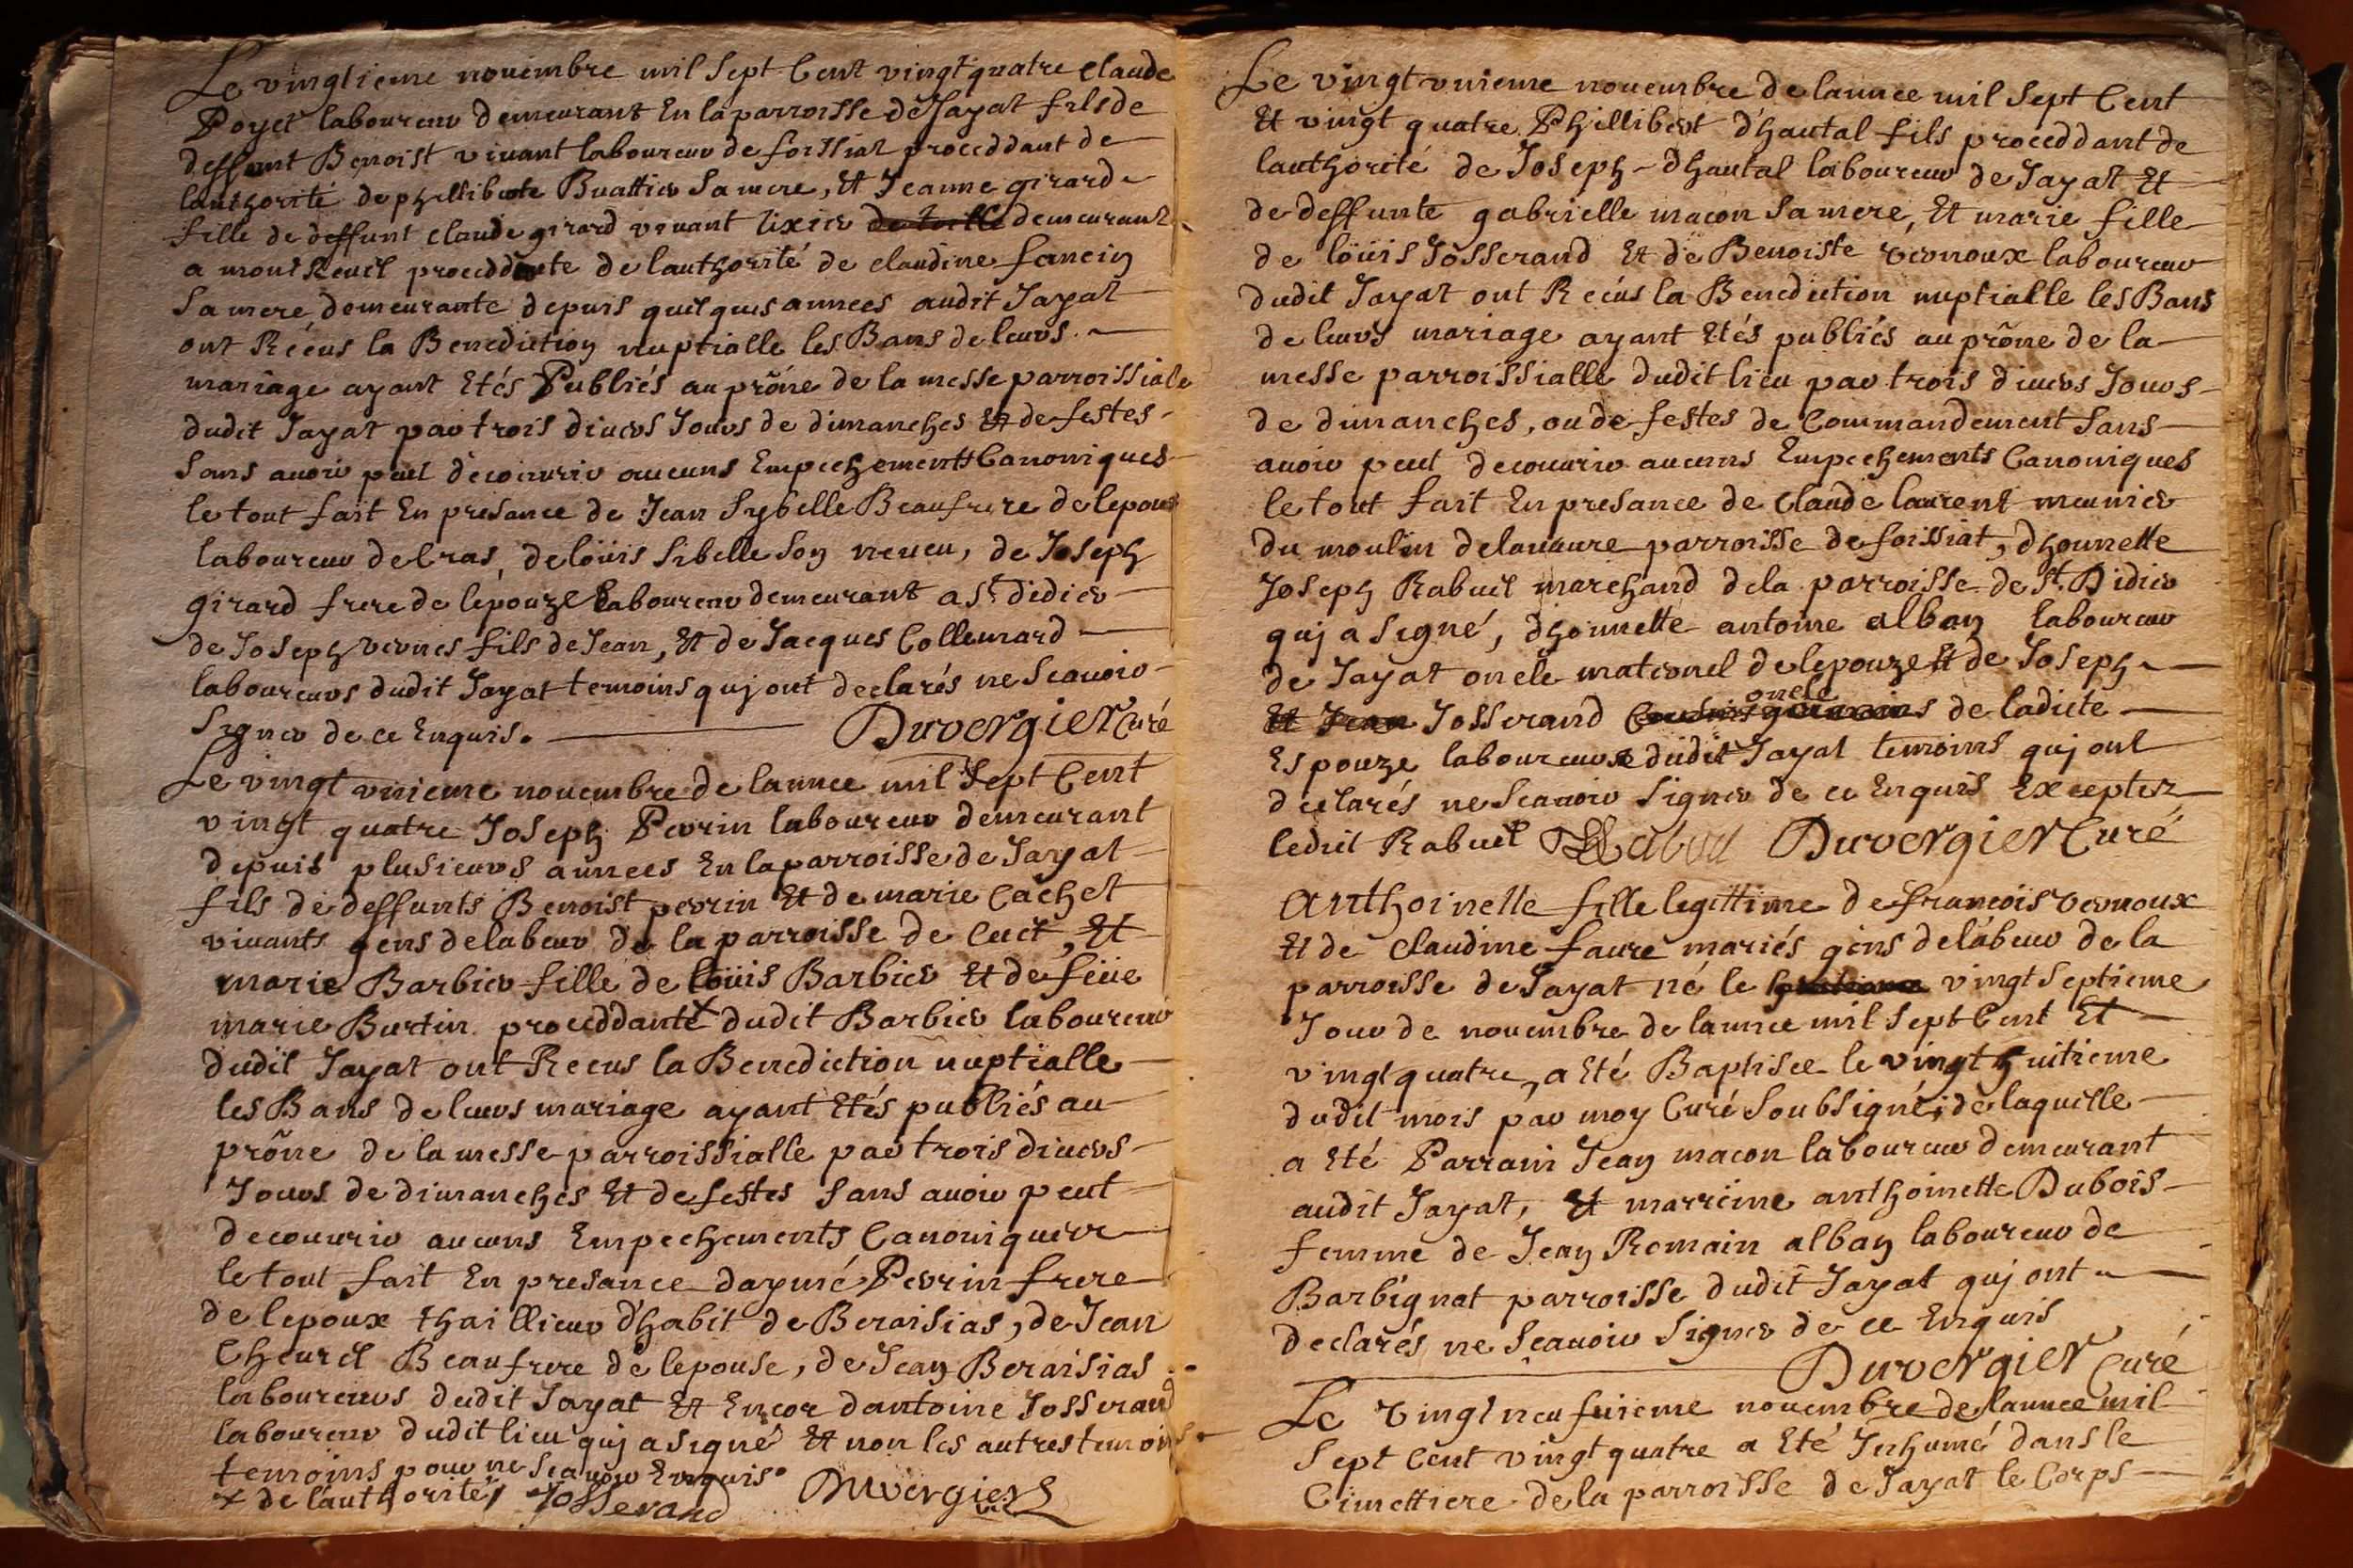 Le vingtieme nouembre mil Sept Cent vingt quatre claude
Poyet laboureur demeurant En la parroisse de Jayat fils de
deffunt Benoist viuant laboureur de foissiat proceddant de
lauthorité de philliberte Buattier Sa mere, Et Jeanne girard
fille de deffunt claude girard viuant tixier de toille demeurant
a montReuil proceddante de lauthorité de claudine fancin
Sa mere demeurante depuis quelques annees audit Jayat
ont Réceus la Benediction nuptialle les Bans de leurs
mariage ayant Etés Publiés au prône de la messe parroissiale
dudit Jayat par trois diuers Jours de dimanches Et de festes
Sans auoir peut decouurir aucuns Empechements Canoniques
le tout fait En presance de Jean Sybelle Beaufrere de lepoux
laboureur de Cras, de loüis Sibelle Son neueu, de Joseph
girard frere de lepouze laboureur demeurant a St didier
de Joseph vernes fils de Jean, Et de Jacques Collemard
laboureurs dudit Jayat temoins quj ont declarés ne Scauoir
Signer de ce Enquis. Duvergier Curé
Le vingt vnieme nouembre de lannee mil Sept Cent
vingt quatre Joseph Perrin laboureur demeurant
depuis plusieurs années En la parroisse de Jayat
fils de deffunts Benoist perrin Et de marie Cachet
viuants gens de labeur de la parroisse de Cuet, Et
marie Barbier fille de loüis Barbier Et de feüe
marie Burtin proceddante x dudit Barbier laboureur
dudit Jayat ont Receus la Benediction nuptialle
les Bans de leurs mariage ayant Etés publiés au
prône de la messe parroissialle par trois diuers
Jours de dimanches Et de festes Sans auoir peut
decouurir aucuns Empechements Canoniques
le tout fait En presance daymé Perrin frere
de lepoux thaillieur d'habit de Beraisias, de Jean
Cheurel Beaufrere de lepouse, de Jean Beraisias
laboureurs dudit Jayat Et Encor dantoine Josserand
laboureur dudit lieu quj a signé Et non les autres temoins
temoins pour ne Scauoir Enquis.
x de lauthorité Josserand Duvergier
Le vingt vnieme nouembre de lannee mil Sept Cent
Et vingt quatre Phillibert d'hautal fils proceddant de
lauthorité de Joseph dhautal laboureur de Jayat Et
de deffunte gabrielle macon Sa mere, Et marie fille
de loüis Josserand Et de Benoiste vernoux laboureur
dudit Jayat ont Recéus la Benediction nuptialle les Bans
de leurs mariage ayant Etés publiés au prône de la
messe parroissialle dudit lieu par trois diuers Jours
de dimanches, ou de festes de Commandement Sans
auoir peut decouurir aucuns Empechements Canoniques
le tout fait En presance de Claude laurent meunier
du moulin delauaure parroisse de foissiat, dhonnette
Joseph Rabuel marchand dela parroisse de St Didier
quj a Signé, dhonnette antoine alban laboureur
de Jayat oncle maternel de lepouze Et de Joseph
Et Jean Josserand oncle de ladicte
Espouze laboureurs dudit Jayat temoins quj ont
declarés ne Scauoir Signer de ce Enquis Exceptez
ledit Rabuel Rabuel Duvergier Curé
Anthoinette fille legittime de francois vernoux
Et de Claudine faure mariés gens de labeur de la
parroisse de Jayat né le vingt Septieme
Jour de nouembre de lannee mil Sept Cent Et
vingt quatre, a Eté Baptisée le vingt huitieme
dudit mois par moy Curé Soubsigné, de laquelle
a Eté Parrain Jean macon laboureur demeurant
audit Jayat, Et marreine anthoinette Dubois
femme de Jean Romain alban laboureur de
Barbignat parroisse dudit Jayat quj ont
declarés ne Scauoir Signer de ce Enquis
Duvergier Curé
Le vingt neufuieme nouembre de lannee mil
Sept Cent vingt quatre a Eté Inhumé dans le
Cimettiere de la parroisse de Jayat le Corps